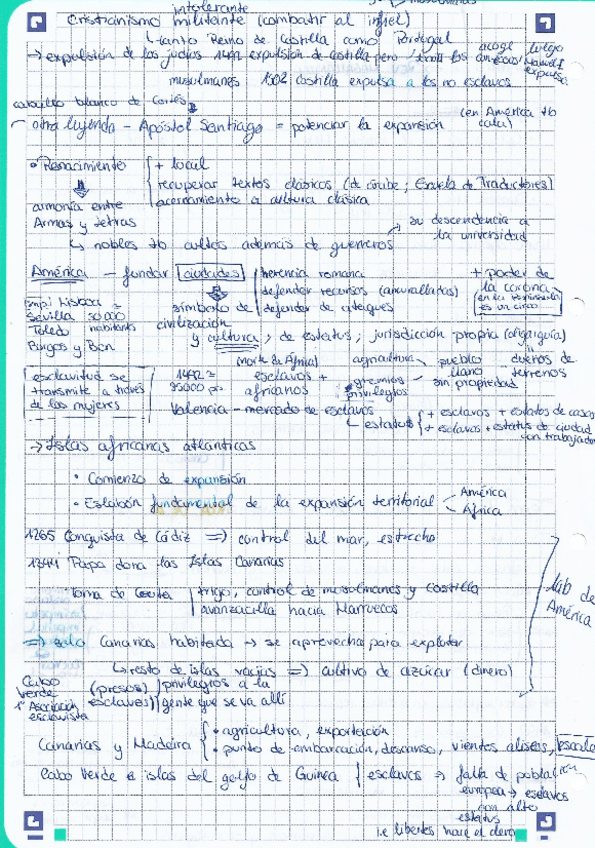 intolerante
Cristianismo militante (combatir al infiel)
tanto Reino de Castilla como Portugal
→ expulsión de los judíos 1492 expulsión de Castilla pero
acoge luego
Manuel I
expulsa
musulmanes 1502 Castilla expulsa a los no esclavos
caballo blanco de Cortés
otra leyenda - Apóstol Santiago = potenciar la expansión
(en América tb
• Renacimiento + local
recuperar textos clásicos (de árabe; Escuela de Traductores)
acercamiento a cultura clásica
armonía entre
Armas y Letras
↳ nobles tb cultos además de guerreros
→ su descendencia a
la universidad
América - fundar ciudades
herencia romana
defender recursos (amurallados)
defender de ataques
+ poder de
la corona
en la Península
símbolo de
civilización
y cultura, de estatus; jurisdicción propia (oligarquía)
Lisboa =
Sevilla 50000
Toledo habitantes
Burgos y Bcn
esclavitud se
transmite a través
de las mujeres
1492 =
35000 px
esclavos +
africanos
(norte de África)
agricultura
gremios
privilegios
pueblo
llano
sin propiedad
dueños de
terrenos
Valencia - mercado de esclavos
estatus
+ esclavos + estatus de casas
+ esclavos + estatus de ciudad
con trabajador
→ Islas africanas atlánticas
• Comienzo de expansión
• Eslabón fundamental de la expansión territorial
América
África
1265 Conquista de Cádiz => control del mar, estrecho
1344 Papa dona las Islas Canarias
Toma de Ceuta
trigo, control de musulmanes y Castilla
avanzadilla hacia Marruecos
lab de
América
=> solo Canarias habitada → se aprovecha para explotar
↳ resto de islas vacías => cultivo de azúcar (dinero)
Cabo
Verde
1ª Asociación
esclavista
(presos)
esclavos
privilegios a la
gente que se va allí
Canarias y Madeira
• agricultura, exportación
• punto de embarcación, descanso, vientos alíseos, escala
Cabo Verde e islas del golfo de Guinea
esclavos → falta de población
europea → esclavos
con alto
estatus
i.e libertos hace el clero